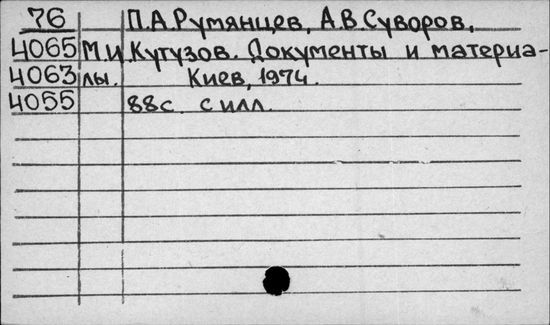 76 П.А.Румянцев, А.В.Суворов,
4065 М.И.Кутузов. Документы и материа-
4063 лы. Киев, 1974.
4055 88с. с илл.